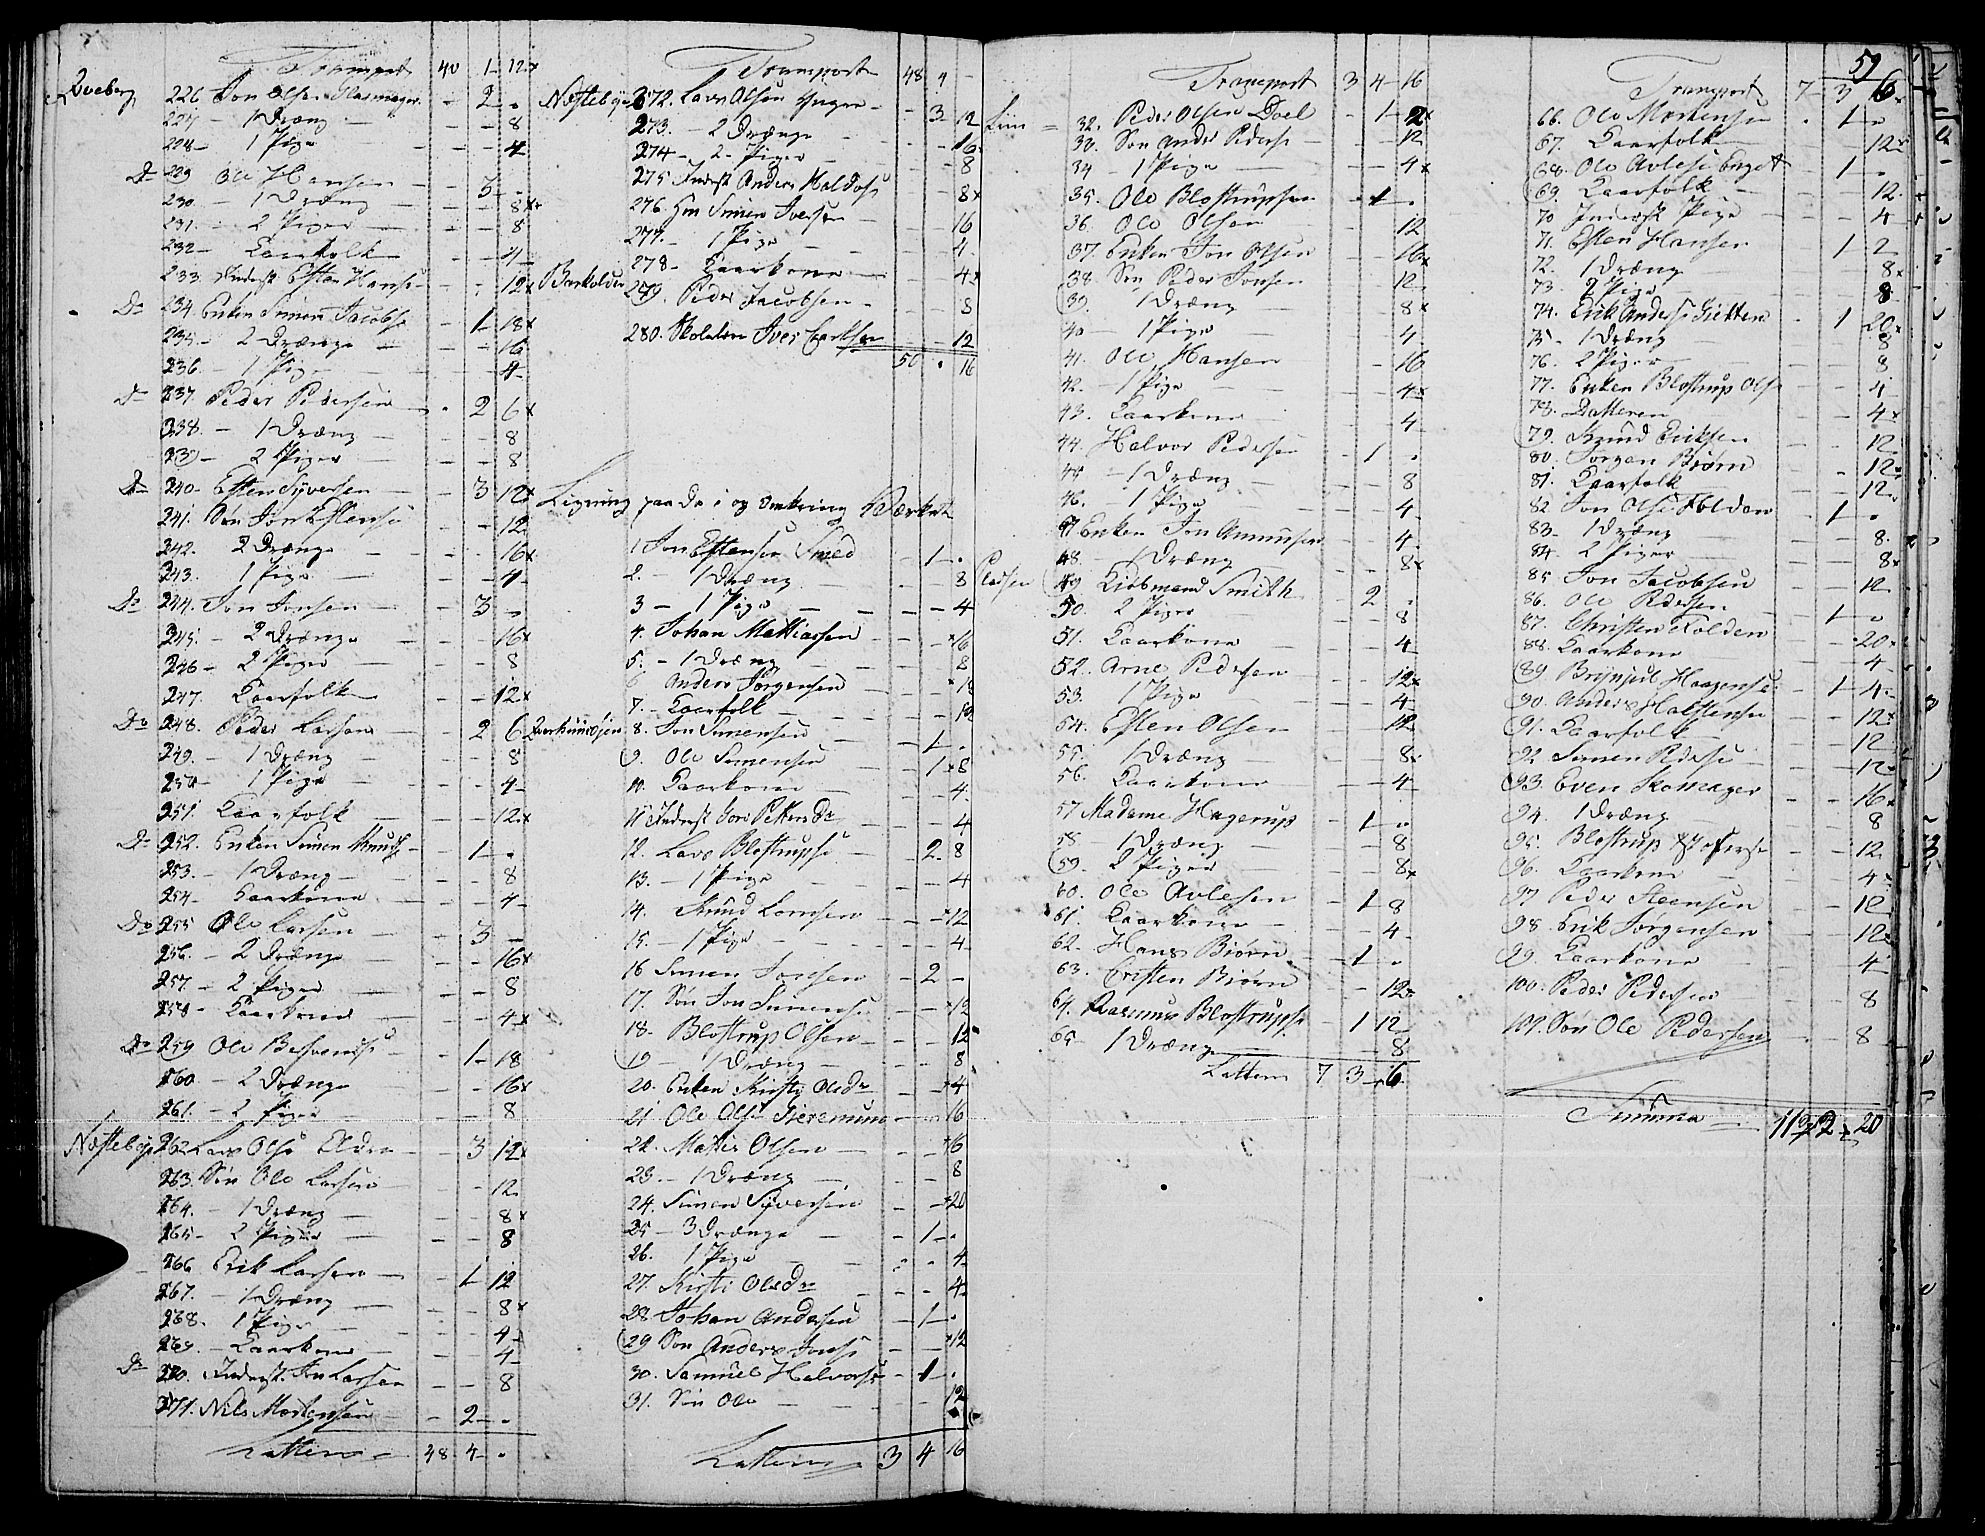 Transport 40 1 12
Qveberg 226. Jon Olsen Glasmager - 2 -
227 - 1 Dræng - - 8
228 - 1 Pige - - 4
Do 229 Ole Hansen - 3 -
230. - 1 Dræng - - 8
231. - 2 Piger - - 8
232 - Kaarfolk - - 4
233. Inderst Esten Hanse - - 12
Do 234. Enken Simen Jacobs - 1 18
235. - 2 Drænge - - 16
236. - 1 Pige - - 4
Do 237 Peder Pedersen - 2 6
238. - 1 Dræng - - 8
239 - 2 Piger - - 8
Do 240 - Esten Syversen - 3 12
241. Søn Jon Estense - - 12
242. 2 Drænge - - 16
243. 1 Pige - - 4
Do 244. Jon Jonsen - 3 -
245. - 2 Drænge - - 16
246 - 2 Piger - - 8
247. Kaarfolk - - 12
Do 248. Peder Larsen - 2 6
249. - 1 Dræng - - 8
250 - 1 Pige - - 4
251. Kaarfolk - - 12
Do 252. Enken Simen Knuds - 1 -
253. - 1 Dræng - - 8
254 - Kaarkone - - 4
Do 255 Ole Larsen - 3 -
256. - 2 Drænge - - 16
257. - 2 Piger - - 8
258 - Kaarkone - - 4
Do 259 Ole - 1 18
260. - 2 Drænge - - 16
261. - 2 Piger - - 8
Næstebye 262 Lars Olse Eldre - 3 12
263. Søn Ole Larsen - - 12
264. - 1 Dræng - - 8
265 - 2 Piger - - 8
266 Erik Larsen - 1 12
267. - 1 Dræng - - 8
268. 1 Pige - - 4
269. - Kaarkone - - 4
Do 270. Inderst Jon Larsen - - 8
271. Nils Mortensen - 2 -
Latteris 48 4 -
Transport 48 4 -
Næstebye 272. Lars Olsen Yngre - 3 12
273. - 2 Drænge - - 16
274 - 2 Piger - - 8
275 Inderst Anders Haldorse - - 8
276. Hm Simen Iversen - - 16
277. - 1 Pige - - 4
278 - Kaarkone - - 4
279. Peder Jacobsen - - 8
280. Skolelærer Iver - - 12
50 - 16
Ligning paa de i og omkring Værket
1 Jon Estensen Smed - 1 -
2. - 1 Dræng - - 8
3 - 1 Pige - - 4
4. Johan Mathiassen - - 16
5. - 1 Dræng - - 8
6 Anders Jørgensen - -
7. - Kaarfolk - -
8. Jon Simensen - 1 -
9. Ole Simensen - 1 8
10. Kaarkone - - 4
11 Inderst - - 4
12. Lars Blostrupse - 2 8
13. - 1 Pige - - 4
14. Knud - - 12
15. - 1 Pige - - 4
16 Simen Jonsen - 2 -
17. Søn Jon Simense - - 12
18. Blostrup Olsen - - 12
19 - 1 Dræng - - 8
20. Enken Kirsti Olsdr - - 4
21. Ole Olse - - 16
22. Olsen - - 16
23. - 1 Dræng - - 8
24. Simen Syversen - - 20
25 - 3 Drænge - 1 -
26. 1 Pige - - 4
27. Kirsti Olsdr - - 4
28 Johan Andersen - 1 -
29 Søn Anders Johans - - 12
30. Samuel Halvorse - 1 -
31. Søn Ole - - 12
Latteris 3 4 16
Transport 3 4 16
Liin 32. Peder Olsen Doel - 1 2
33. Søn Anders Pederse - - 12
34 - 1 Pige - - 4
35. Ole Blostrupsen - 1 -
36. Ole Olsen - - 12
37. Enken Jon Olsen - - 16
38. Søn Peder Jonsen - - 12
39. 1 Dræng - - 8
40 - 1 Pige - - 4
41. Ole Hansen - - 16
42. - 1 Pige - - 4
43. Kaarkone - - 4
44. Halvor Pedersen - 1 -
45 - 1 Dræng - - 8
46. 1 Pige - - 4
47 Enken Jon Amundsen - - 4
48. - 1 Dræng - - 8
Pladsen 49. Kiøbmand Smith - 2 -
50. 2 Piger - - 8
51. Kaarkone - - 4
52. Arne Pedersen - - 12
53. 1 Pige - - 4
54. Esten Olsen - - 12
55. 1 Dræng - - 8
56. Kaarkone - - 4
57 Madame Hagerup - 1 -
58. - 1 Dræng - - 8
59. 2 Piger - - 8
60. Ole Avlesen - 1 8
61. Kaarkone - - 4
62. Hans Biørn - 1 -
63. Cristen Biørn - - 12
64. Rasmus Blostrupse - 1 12
65. 1 Dræng - - 8
Latteris 7 3 6
59
Transport 7 3 6
66. Ole Mortensen - 1 -
67. Kaarfolk - - 12
68. Ole Avlese Enget - 1 -
69. Kaarfolk - - 12
70 Inderst Pige - - 4
71. Esten Hansen - 1 2
72. 1 Dræng - - 8
73. 2 Piger - - 8
74. Erik Anderse - 1 20
75. 1 Dræng - - 8
76. 2 Piger - - 8
77. Enken Blostrup Olse - - 4
78. Datteren - - 4
79. Knud Eriksen - - 12
80. Jørgen Biørn - - 12
81. Kaarfolk - - 12
82 Jon Olse Folden - 1 -
83. 1 Dræng - - 8
84. 2 Piger - - 8
85 Jon Jacobsen - - 12
86. Ole Pedersen - 1 -
87. Christen Folden - - 20
88. Kaarkone - - 4
89. Brynjul Haagense - 1 4
90. Anders Halstense - - 12
91. Kaarfolk - - 12
92 Simen Pederse - - 12
93. Even Skomager - - 16
94. 1 Dræng - - 8
95. Blostrup - - 12
96. Kaarkone - - 4
97 Peder Steensen - - 12
98. Erik Jørgensen - - 12
99. Kaarkone - - 4
100. Peder Pedersen - - 8
101. Søn Ole Pedersen - - 8
Summa 11 2 20